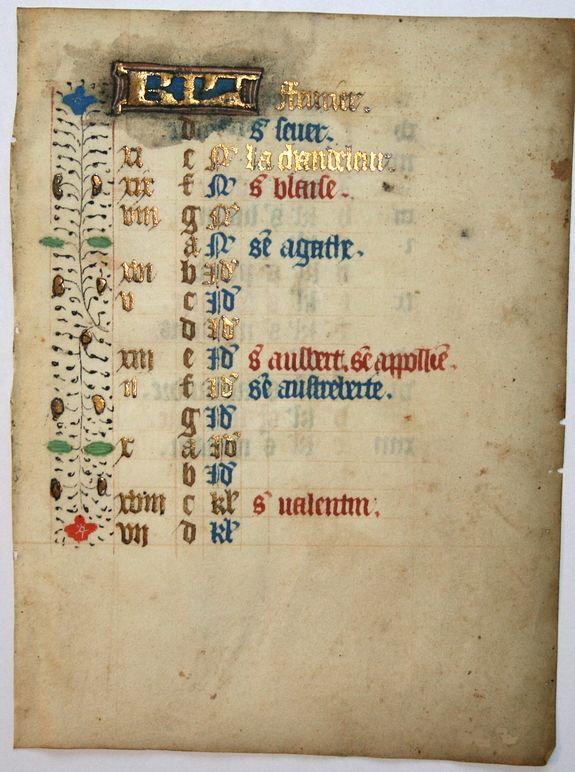 KL feurier.
d s seuer.
xi e N La chandeleur.
xix f N s blaise.
viii g N
a N se agathe.
xvi b Id
v c Id
d Id
xiii e Id s ausbert. se appolli͞e.
ii f Id se austreberte.
g Id
x a Id
b Id
xviii c kl s ualentin.
vii d kl